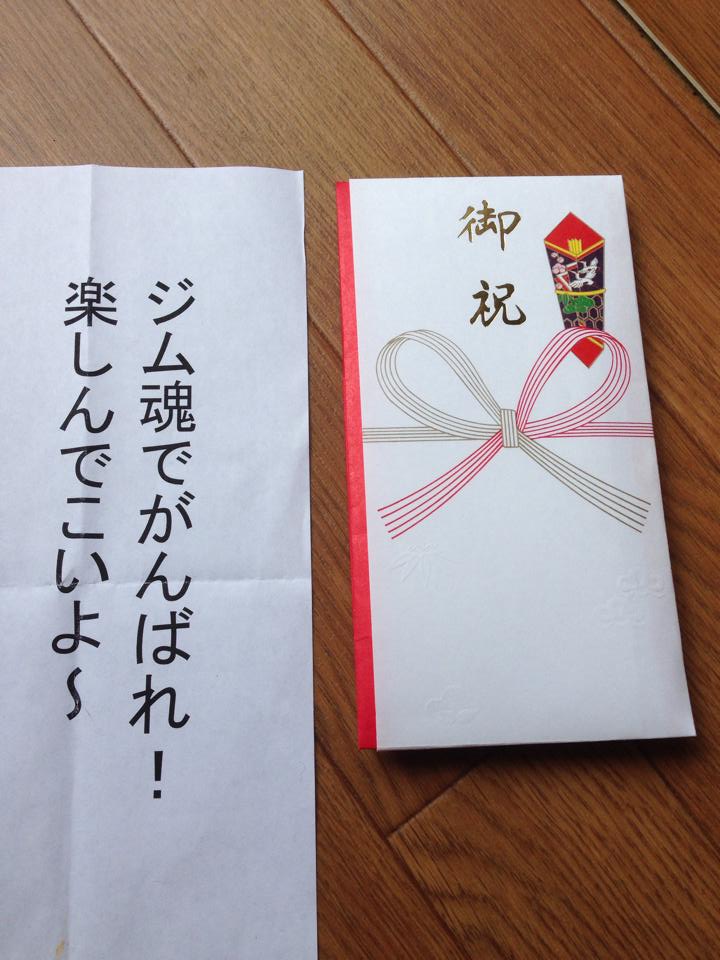 ジム魂でがんばれ！
楽しんでこいよ～
御祝